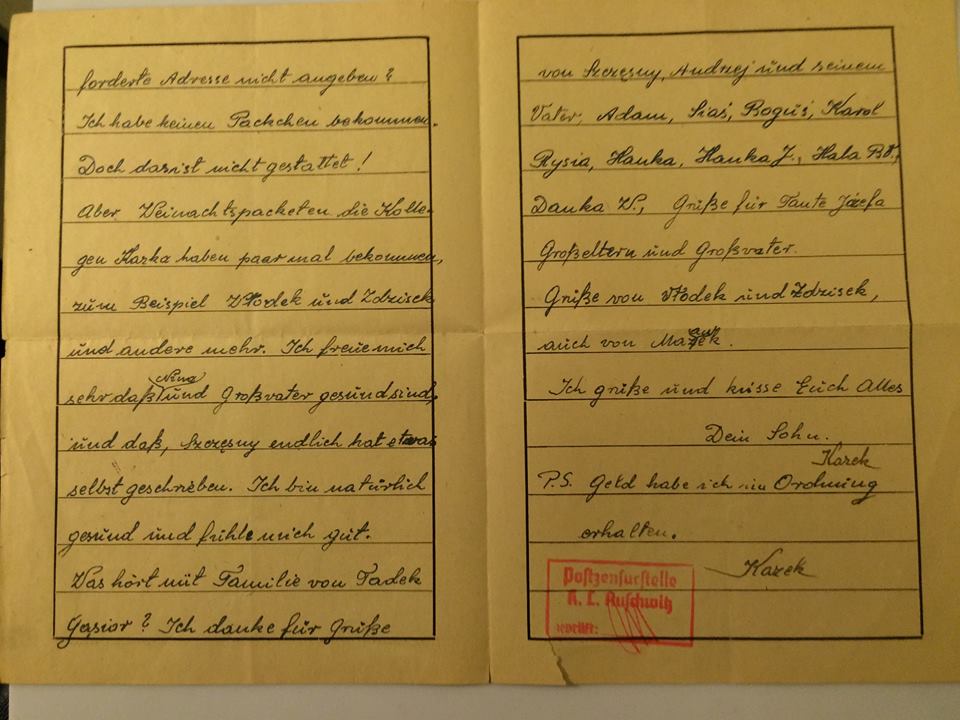 forderte Adresse nicht angeben?
Ich habe keinen Päckchen bekommen.
Doch das ist nicht gestattet!
Aber Weinachtspacketen die Kolle-
gen Kazka haben paar mal bekommen,
zum Beispiel Włodek und Zdzisek
und andere mehr. Ich freue mich
Nina
sehr daß und Großvater gesund sind,
und daß, Szczęsny endlich hat etwas
selbst geschrieben. Ich bin natürlich
gesund und fühle mich gut.
Was hört mit Familie von Tadek
Gąsior? Ich danke für Grüße
von Szczęsny, Andrzej und seinem
Vater, Adam, Staś, Boguś, Karol
Rysia, Hanka, Hanka J., Hala
Danka W., Grüße für Tante Józefa
Großeltern und Großvater.
Grüße von Włodek und Zdzisek,
auch von
Ich grüße und küsse Euch Alles
Dein Sohn.
Kazek
P.S. Geld habe ich in Ordnung
erhalten.
Kazek
Postzensurstelle
K. L. Auschwitz
geprüft: